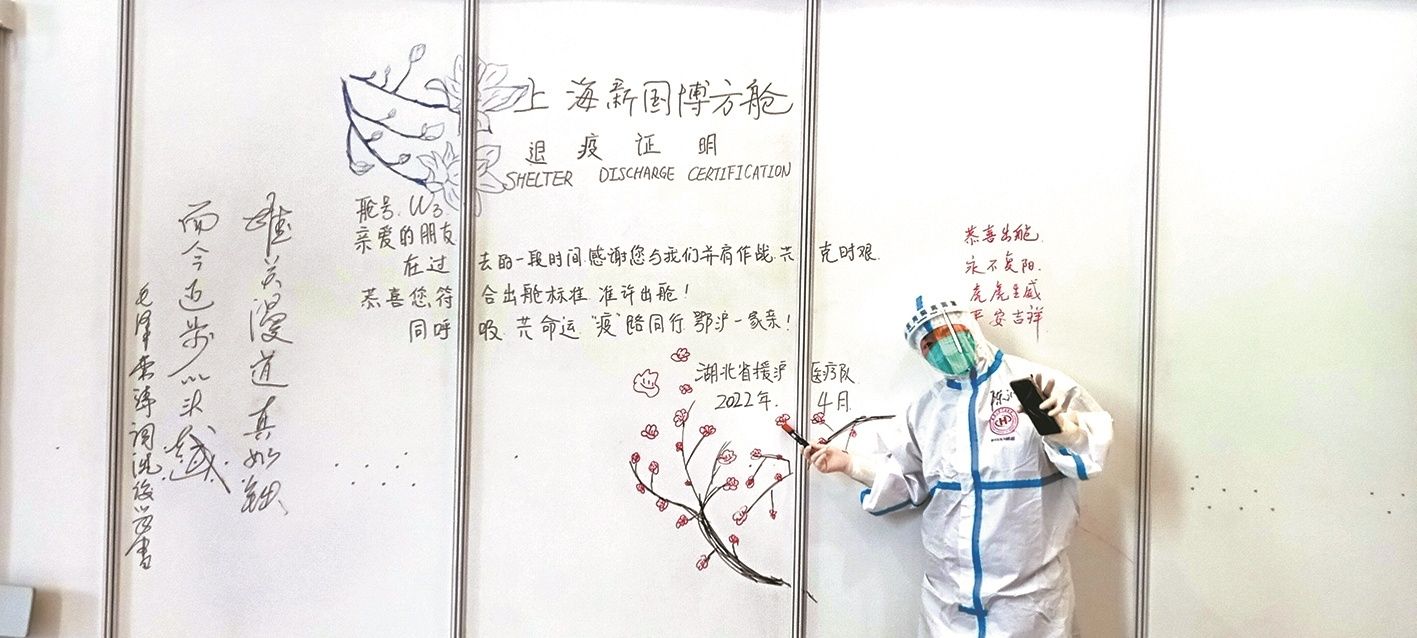 上海新国博方舱
退疫证明
SHELTER DISCHARGE CERTIFICATION
舱号: W3.
亲爱的朋友
在过去的一段时间,感谢您与我们并肩作战,共克时艰.
恭喜您符合出舱标准,准许出舱!
同呼吸,共命运,“疫”路同行,鄂沪一家亲!
湖北省援沪医疗队
2022年.4月.
雄关漫道真如铁
而今迈步从头越
毛泽东诗词
恭喜出舱.
永不复阳.
虎虎生威
平安吉祥
陈